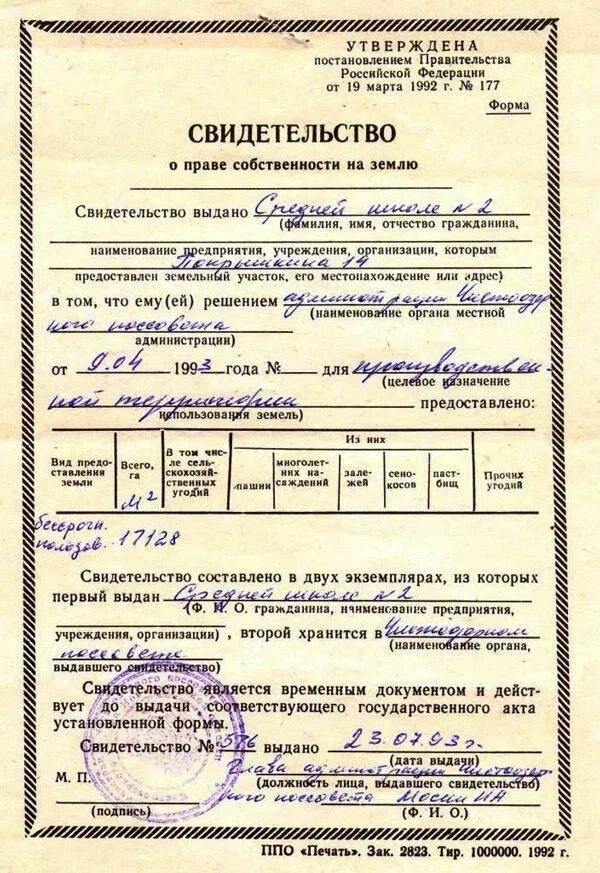 УТВЕРЖДЕНА
постановлением Правительства
Российской Федерации
от 19 марта 1992 г. № 177
Форма
СВИДЕТЕЛЬСТВО
о праве собственности на землю
Свидетельство выдано Средней школе N 2
(фамилия, имя, отчество гражданина,
наименование предприятия, учреждения, организации, которым
Покрышкина 14
предоставлен земельный участок, его местонахождение или адрес)
в том, что ему(ей) решением администрации Чистоозер
(наименование органа местной
ного поссовета
администрации)
от 9.04 1993 года № для производствен-
(целевое назначение
ной территории предоставлено:
использования земель)
Вид предо-ставления земли
Всего, га м2
В том чис-ле сель-скохозяй-ственных угодий
Из них
пашни
многолет-них на-саждений
зале-жей
сено-косов
паст-бищ
Прочих угодий
бессрочн.
пользов. 17128
Свидетельство составлено в двух экземплярах, из которых
первый выдан Средней школе N 2
(Ф. И. О. гражданина, наименование предприятия,
учреждения, организации), второй хранится в Чистоозерном
(наименование органа,
поссовете
выдавшего свидетельство)
Свидетельство является временным документом и дейст-
вует до выдачи соответствующего государственного акта
установленной формы.
Свидетельство № 576 выдано 23.07.93г.
(дата выдачи)
Глава администрации Чистоозер
М. П.
(должность лица, выдавшего свидетельство)
ного поссовета Мосин ИА
(подпись) (Ф. И. О.)
ППО «Печать». Зак. 2823. Тир. 1000000. 1992 г.